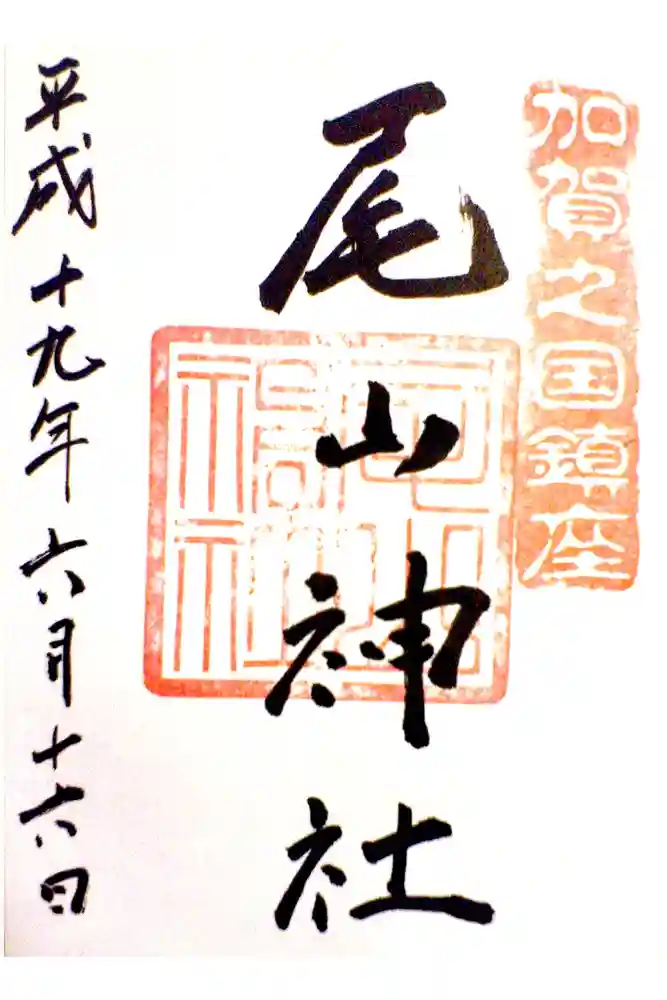 加賀之国鎮座
尾山神社
平成十九年六月十六日